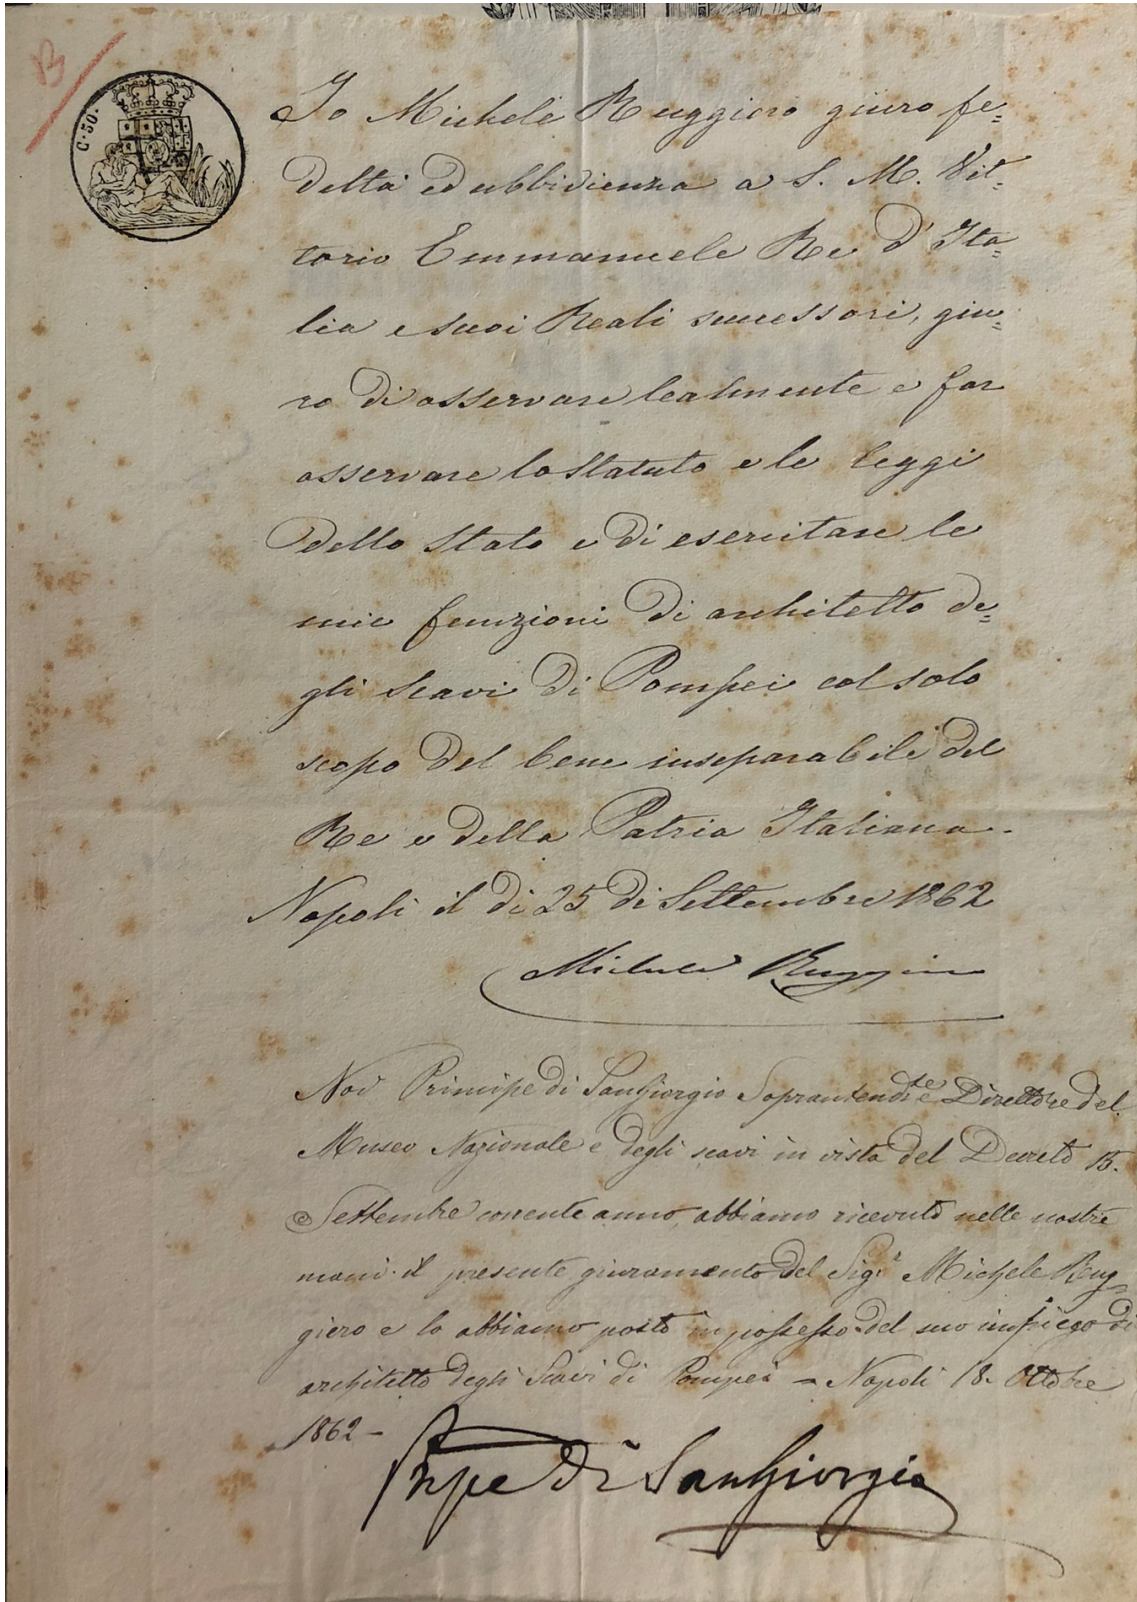 B
C. 50.
Io Michele Ruggiero giuro fe=
deltà ed ubbidienza a S. M. Vit=
torio Emmanuele Re d'Ita=
lia e suoi Reali successori, giu=
ro di osservare lealmente e far
osservare lo Statuto e le leggi
dello Stato e di esercitare le
mie funzioni di architetto de=
gli Scavi di Pompei col solo
scopo del bene inseparabile del
Re e della Patria Italiana.
Napoli il dì 25 di Settembre 1862
Michele Ruggiero
Noi Principe di SanGiorgio Soprantendte e Direttore del
Museo Nazionale e degli scavi in vista del Decreto 15.
Settembre corrente anno, abbiamo ricevuto nelle nostre
mani il presente giuramento del Sigr Michele Rug=
giero e lo abbiamo posto in possesso del suo impiego di
architetto degli Scavi di Pompei = Napoli 18. Ottobre
1862 =
Prpe di SanGiorgio